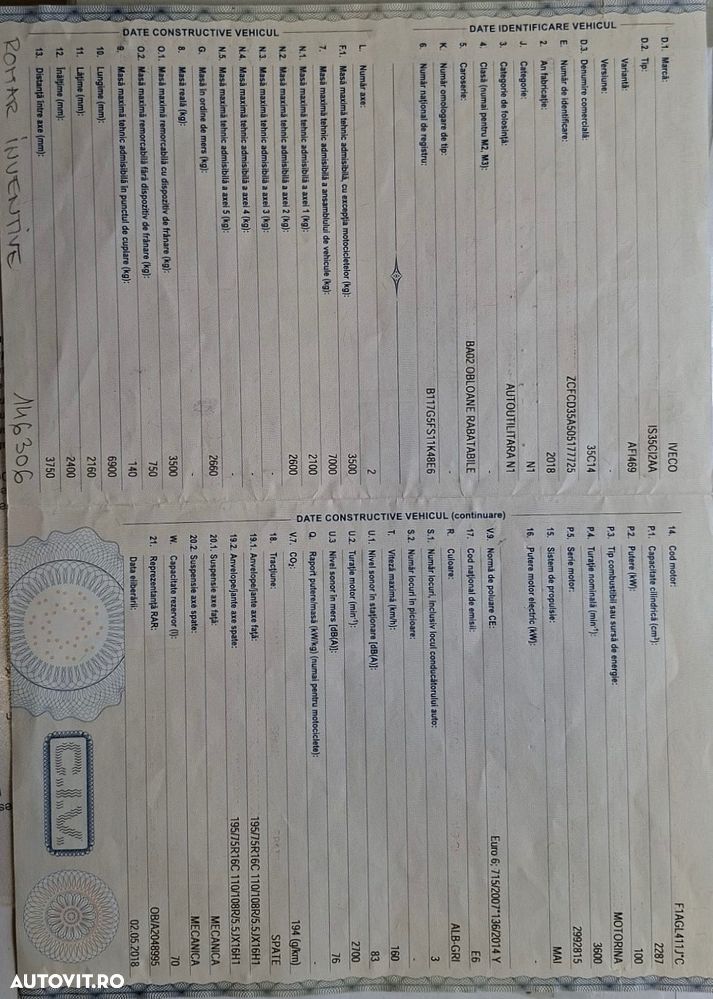 DATE IDENTIFICARE VEHICUL
D.1. Marcă: IVECO
D.2. Tip: IS35CI2AA
Variantă: AFI469
Versiune: -
D.3. Denumire comercială: 35C14
E. Număr de identificare: ZCFCD35A505177725
2. An fabricație: 2018
J. Categorie: N1
3. Categorie de folosință: AUTOUTILITARA N1
4. Clasă (numai pentru M2, M3): -
5. Caroserie: BA02 OBLOANE RABATABILE
K. Număr omologare de tip: -
6. Număr național de registru: B117G5FS11K48E6
DATE CONSTRUCTIVE VEHICUL
L. Număr axe: 2
F.1. Masă maximă tehnic admisibilă, cu excepția motocicletelor (kg): 3500
7. Masă maximă tehnic admisibilă a ansamblului de vehicule (kg): 7000
N.1. Masă maximă tehnic admisibilă a axei 1 (kg): 2100
N.2. Masă maximă tehnic admisibilă a axei 2 (kg): 2600
N.3. Masă maximă tehnic admisibilă a axei 3 (kg): -
N.4. Masă maximă tehnic admisibilă a axei 4 (kg): -
N.5. Masă maximă tehnic admisibilă a axei 5 (kg): -
G. Masă în ordine de mers (kg): 2660
8. Masă reală (kg): -
O.1. Masă maximă remorcabilă cu dispozitiv de frânare (kg): 3500
O.2. Masă maximă remorcabilă fără dispozitiv de frânare (kg): 750
9. Masă maximă tehnic admisibilă în punctul de cuplare (kg): 140
10. Lungime (mm): 6900
11. Lățime (mm): 2160
12. Înălțime (mm): 2400
13. Distanță între axe (mm): 3750
ROMAR INVENTIVE 146306
DATE CONSTRUCTIVE VEHICUL (continuare)
14. Cod motor: F1AGL411J*C
P.1. Capacitate cilindrică (cm³): 2287
P.2. Putere (kW): 100
P.3. Tip combustibil sau sursă de energie: MOTORINA
P.4. Turație nominală (min⁻¹): 3600
P.5. Serie motor: 2992815
15. Sistem de propulsie: MAI
16. Putere motor electric (kW): -
V.9. Normă de poluare CE: Euro 6; 715/2007*136/2014 Y
17. Cod național de emisii: E6
R. Culoare: ALB-GRI
S.1. Număr locuri, inclusiv locul conducătorului auto: 3
S.2. Număr locuri în picioare: -
T. Viteză maximă (km/h): 160
U.1. Nivel sonor în staționare [dB(A)]: 83
U.2. Turație motor (min⁻¹): 2700
U.3 Nivel sonor în mers [dB(A)]: 76
Q. Raport putere/masă (kW/kg) (numai pentru motociclete): -
V.7. CO₂: 194 (g/km)
18. Tracțiune: SPATE
19.1. Anvelope/jante axe față: 195/75R16C 110/108R/5.5JX16H1
19.2. Anvelope/jante axe spate: 195/75R16C 110/108R/5.5JX16H1
20.1. Suspensie axe față: MECANICA
20.2. Suspensie axe spate: MECANICA
W. Capacitate rezervor (l): 70
21. Reprezentanță RAR: OB/A2048995
Data eliberării: 02.05.2018
CIV
AUTOVIT.RO